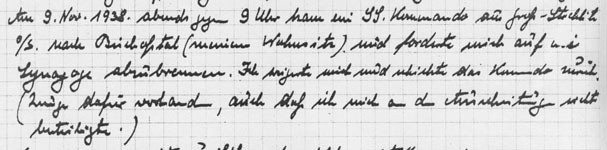 Am 9. Nov. 1938. abends gegen 9 Uhr kam ein SS. Kommando aus Groß-Strehlitz
O/S. nach Bischofstal (meinem Wohnsitz) und forderte mich auf die
Synagoge abzubrennen. Ich weigerte mich und schickte das Kommando zurück.
(Zeuge dafür vorhand., auch daß ich mich an d. Ausschreitungen nicht
beteiligte.)